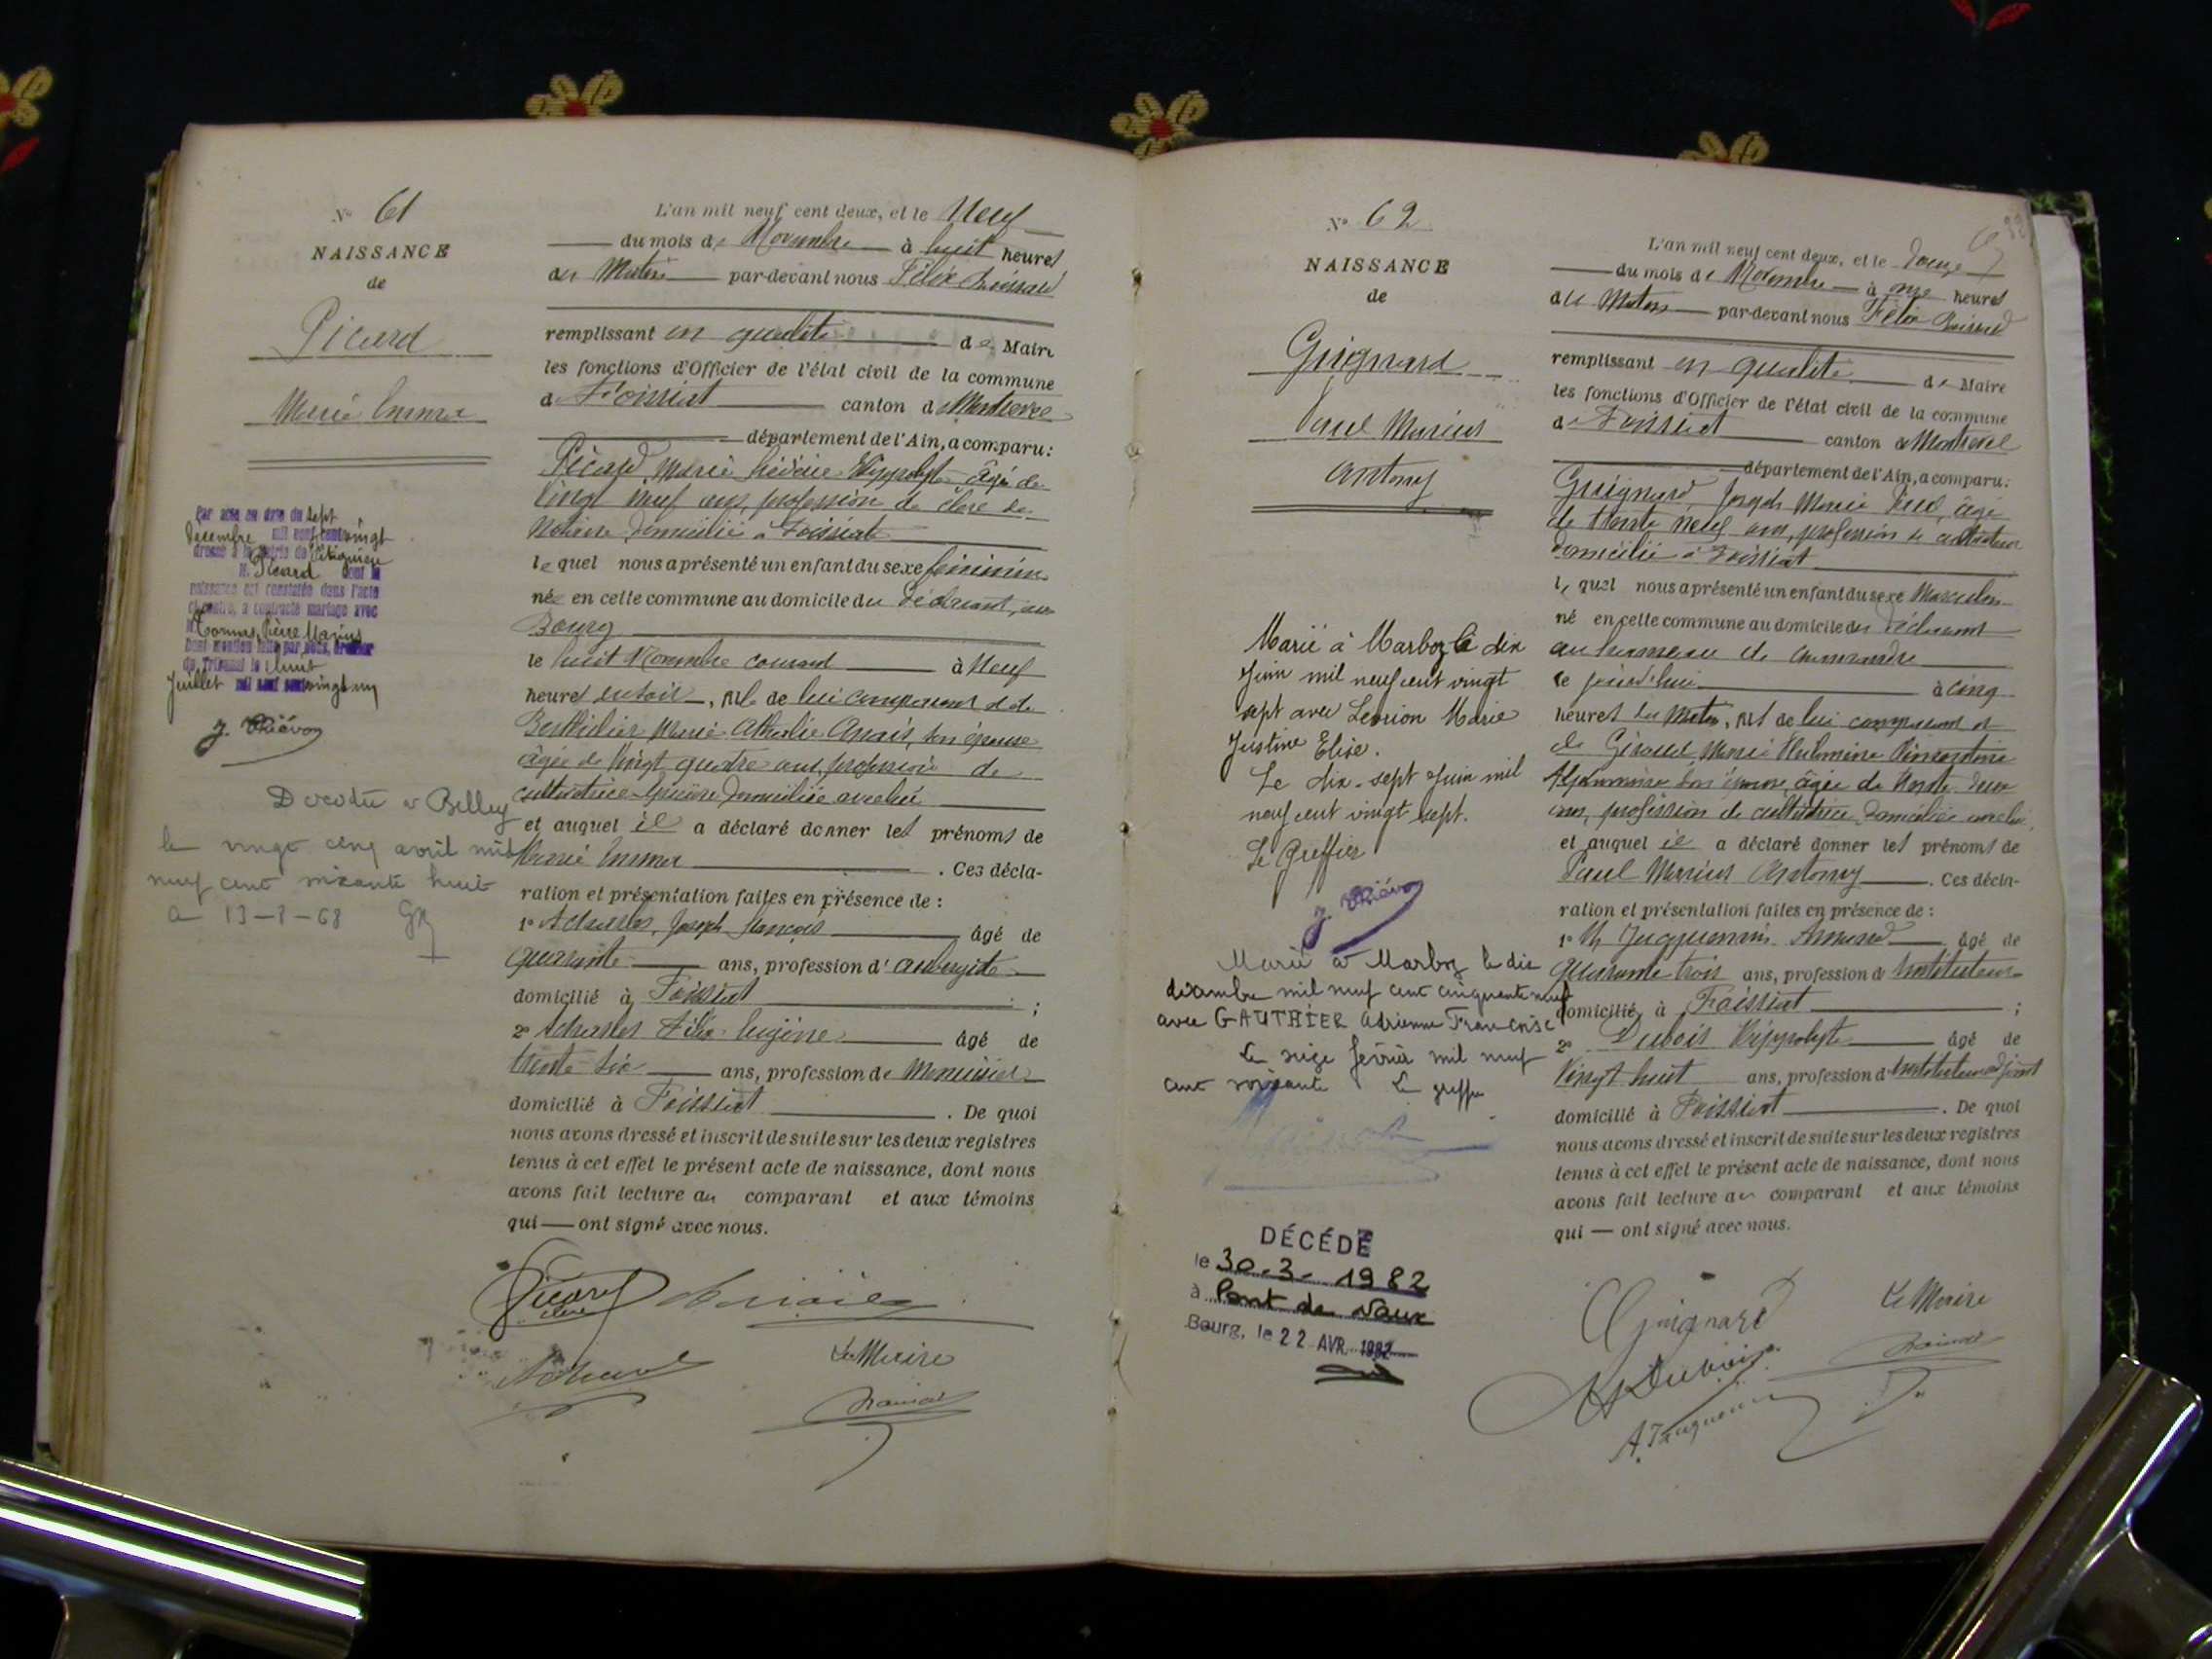 N° 61
NAISSANCE
de
Picard
Marie Emma
Par acte en date du sept
Décembre mil neuf cent vingt
dressé à la mairie de
M. Picard dont la
naissance est constatée dans l'acte
ci-contre, a contracté mariage avec
M. Cormas, Pierre Marius
Dont mention faite par nous, Greffier
du Tribunal le huit
Juillet mil neuf cent vingt un
J. Thiévon
Décédée à Belley
le vingt cinq avril mil
neuf cent soixante huit
L'an mil neuf cent deux, et le Neuf
du mois de Novembre à huit heures
du Matin par-devant nous Félix
remplissant en qualité de Maire
les fonctions d'Officier de l'état civil de la commune
de Foissiat canton de Montrevel
département de l'Ain, a comparu:
Picard, Marie Hippolyte âgé de
Vingt neuf ans, profession de clerc de
Notaire, domicilié à Foissiat
lequel nous a présenté un enfant du sexe féminin
née en cette commune au domicile du déclarant, au
Bourg
le huit Novembre courant à Neuf
heures du soir, née de lui comparant et de
Berthelier Marie Athalie Anaïs, son épouse
âgée de Vingt quatre ans, profession de
domiciliée avec lui
et auquel il a déclaré donner les prénoms de
Marie Emma. Ces décla-
ration et présentation faites en présence de:
1° Joseph François âgé de
quarante ans, profession d'aubergiste
domicilié à Foissiat;
2° Félix Eugène âgé de
trente six ans, profession de Menuisier
domicilié à Foissiat. De quoi
nous avons dressé et inscrit de suite sur les deux registres
tenus à cet effet le présent acte de naissance, dont nous
avons fait lecture au comparant et aux témoins
qui — ont signé avec nous.
Picard
Le Maire
N° 62
NAISSANCE
de
Guignard
Paul Marius
Antony
Marié à Marboz le dix
Juin mil neuf cent vingt
sept avec Marie
Justine Elise.
Le dix-sept Juin mil
neuf cent vingt sept.
Le Greffier
J. Thiévon
Marié à Marboz le dix
décembre mil neuf cent cinquante neuf
avec GAUTHIER Adrienne Françoise
Le seize février mil neuf
cent soixante Le greffier
DÉCÉDÉ
le 30-3-1982
à Pont de Vaux
Bourg, le 22 AVR. 1982
L'an mil neuf cent deux, et le Douze
du mois de Novembre à onze heures
du Matin par-devant nous Félix
remplissant en qualité de Maire
les fonctions d'Officier de l'état civil de la commune
de Foissiat canton de Montrevel
département de l'Ain, a comparu:
Guignard Joseph Marie âgé
de trente neuf ans, profession de cultivateur
domicilié à Foissiat
lequel nous a présenté un enfant du sexe Masculin
né en cette commune au domicile du déclarant
au hameau de
le jourd'hui à cinq
heures du Matin, né de lui comparant et
de Marie Philomène
son épouse, âgée de trente deux
ans, profession de cultivatrice domiciliée avec lui
et auquel il a déclaré donner les prénoms de
Paul Marius Antony. Ces décla-
ration et présentation faites en présence de:
1° M Jacquemin Armand âgé de
quarante trois ans, profession d'Instituteur
domicilié à Foissiat;
2° Dubois Hippolyte âgé de
Vingt huit ans, profession d'Instituteur adjoint
domicilié à Foissiat. De quoi
nous avons dressé et inscrit de suite sur les deux registres
tenus à cet effet le présent acte de naissance, dont nous
avons fait lecture au comparant et aux témoins
qui — ont signé avec nous.
Guignard
Le Maire
H Dubois
A. Jacquemin